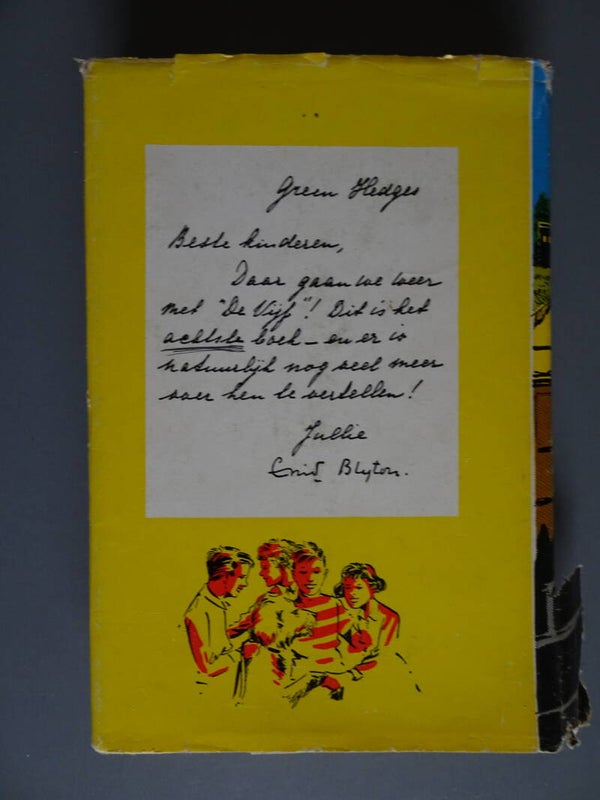 Green Hedges
Beste kinderen,
Daar gaan we weer
met "De Vijf"! Dit is het
achtste boek – en er is
natuurlijk nog veel meer
over hen te vertellen!
Jullie
Enid Blyton.